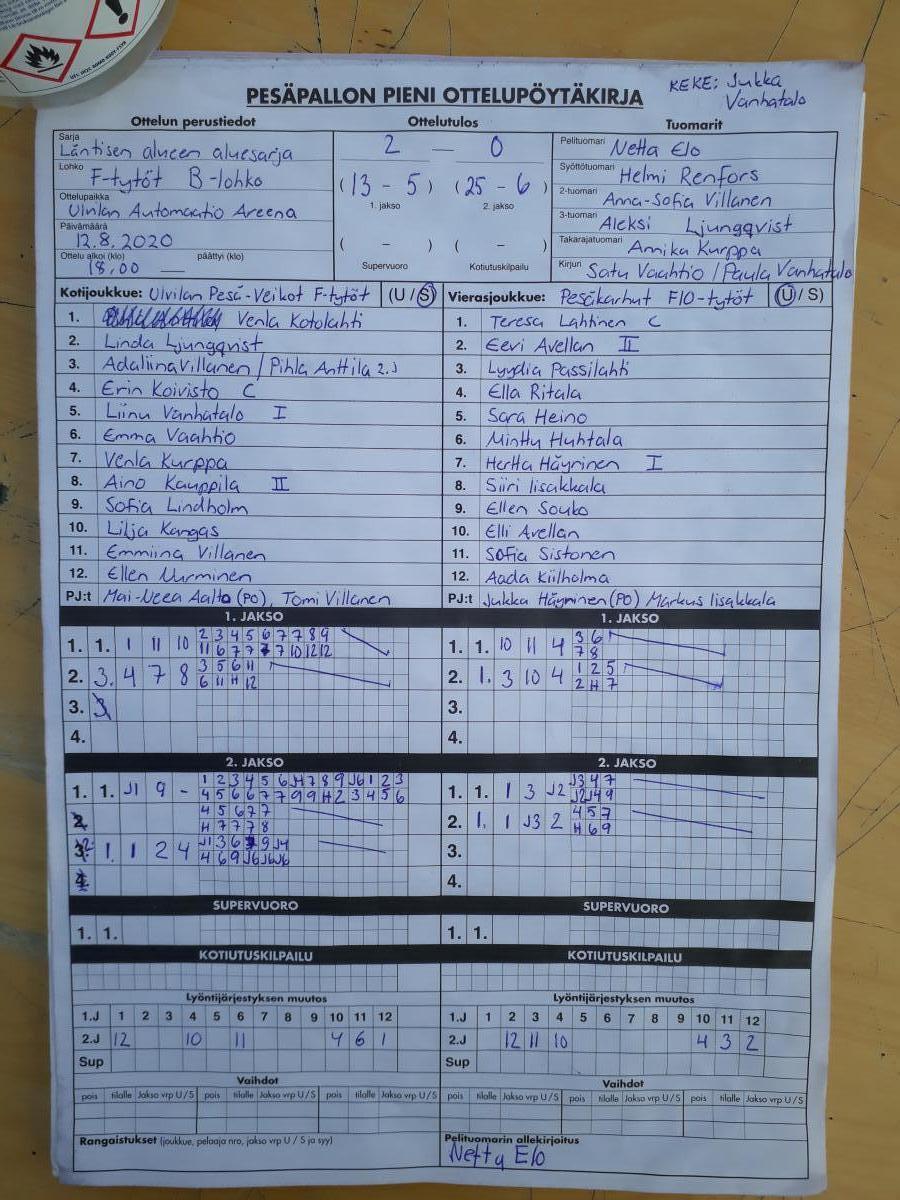 KEKE: Jukka
Vanhatalo
PESÄPALLON PIENI OTTELUPÖYTÄKIRJA
Ottelun perustiedot Ottelutulos Tuomarit
Sarja
Läntisen alueen aluesarja
Lohko
F-tytöt B-lohko
Ottelupaikka
Ulvilan Automaatio Areena
Päivämäärä
12.8.2020
Ottelu alkoi (klo) päättyi (klo)
18.00 —
2 — 0
(13 - 5) (25 - 6)
1. jakso 2. jakso
( - ) ( - )
Supervuoro Kotiutuskilpailu
Pelituomari Netta Elo
Syöttötuomari Helmi Renfors
2-tuomari Anna-Sofia Villanen
3-tuomari Aleksi Ljungqvist
Takarajatuomari Annika Kurppa
Kirjuri Satu Vaahtio / Paula Vanhatalo
Kotijoukkue: Ulvilan Pesä-Veikot F-tytöt (U / S)
1. Venla Kotolahti
2. Linda Ljungqvist
3. Adaliina Villanen / Pihla Anttila 2.J
4. Erin Koivisto C
5. Liinu Vanhatalo I
6. Emma Vaahtio
7. Venla Kurppa
8. Aino Kauppila II
9. Sofia Lindholm
10. Lilja Kangas
11. Emmiina Villanen
12. Ellen Nurminen
PJ:t Mai-Neea Aalto (PO), Tomi Villanen
Vierasjoukkue: Pesäkarhut F10-tytöt (U / S)
1. Teresa Lahtinen C
2. Eevi Avellan II
3. Lyydia Passilahti
4. Ella Ritala
5. Sara Heino
6. Minttu Huhtala
7. Hertta Häyrinen I
8. Siiri Iisakkala
9. Ellen Souko
10. Elli Avellan
11. Sofia Sistonen
12. Aada Kiilholma
PJ:t Jukka Häyrinen (PO) Markus Iisakkala
1. JAKSO
1. 1. 1 11 10 2 3 4 5 6 7 7 8 9
2. 3. 4 7 8 3 5 6 11
6 11 H 12
3. 3
4.
1. JAKSO
1. 1. 10 11 4 3 6
7 8
2. 1. 3 10 4 1 2 5
2 H 7
3.
4.
2. JAKSO
1. 1. J1 9 - 1 2 3 4 5 6 J4 7 8 9 J6 1 2 3
4 5 6 6 7 7 9 9 H 2 3 4 5 6
4 5 6 7 7
H 7 7 7 8
1. 1 2 4
2. JAKSO
1. 1. 1 3 J2 J3 4 7
J2 J4 9
2. 1. 1 J3 2 4 5 7
H 6 9
3.
4.
SUPERVUORO
1. 1.
SUPERVUORO
1. 1.
KOTIUTUSKILPAILU
KOTIUTUSKILPAILU
Lyöntijärjestyksen muutos
1.J 1 2 3 4 5 6 7 8 9 10 11 12
2.J 12 10 11 4 6 1
Sup
Lyöntijärjestyksen muutos
1.J 1 2 3 4 5 6 7 8 9 10 11 12
2.J 12 11 10 4 3 2
Sup
Vaihdot
pois tilalle Jakso vrp U / S pois tilalle Jakso vrp U / S pois tilalle Jakso vrp U / S
Vaihdot
pois tilalle Jakso vrp U / S pois tilalle Jakso vrp U / S pois tilalle Jakso vrp U / S
Rangaistukset (joukkue, pelaaja nro, jakso vrp U / S ja syy)
Pelituomarin allekirjoitus
Netta Elo